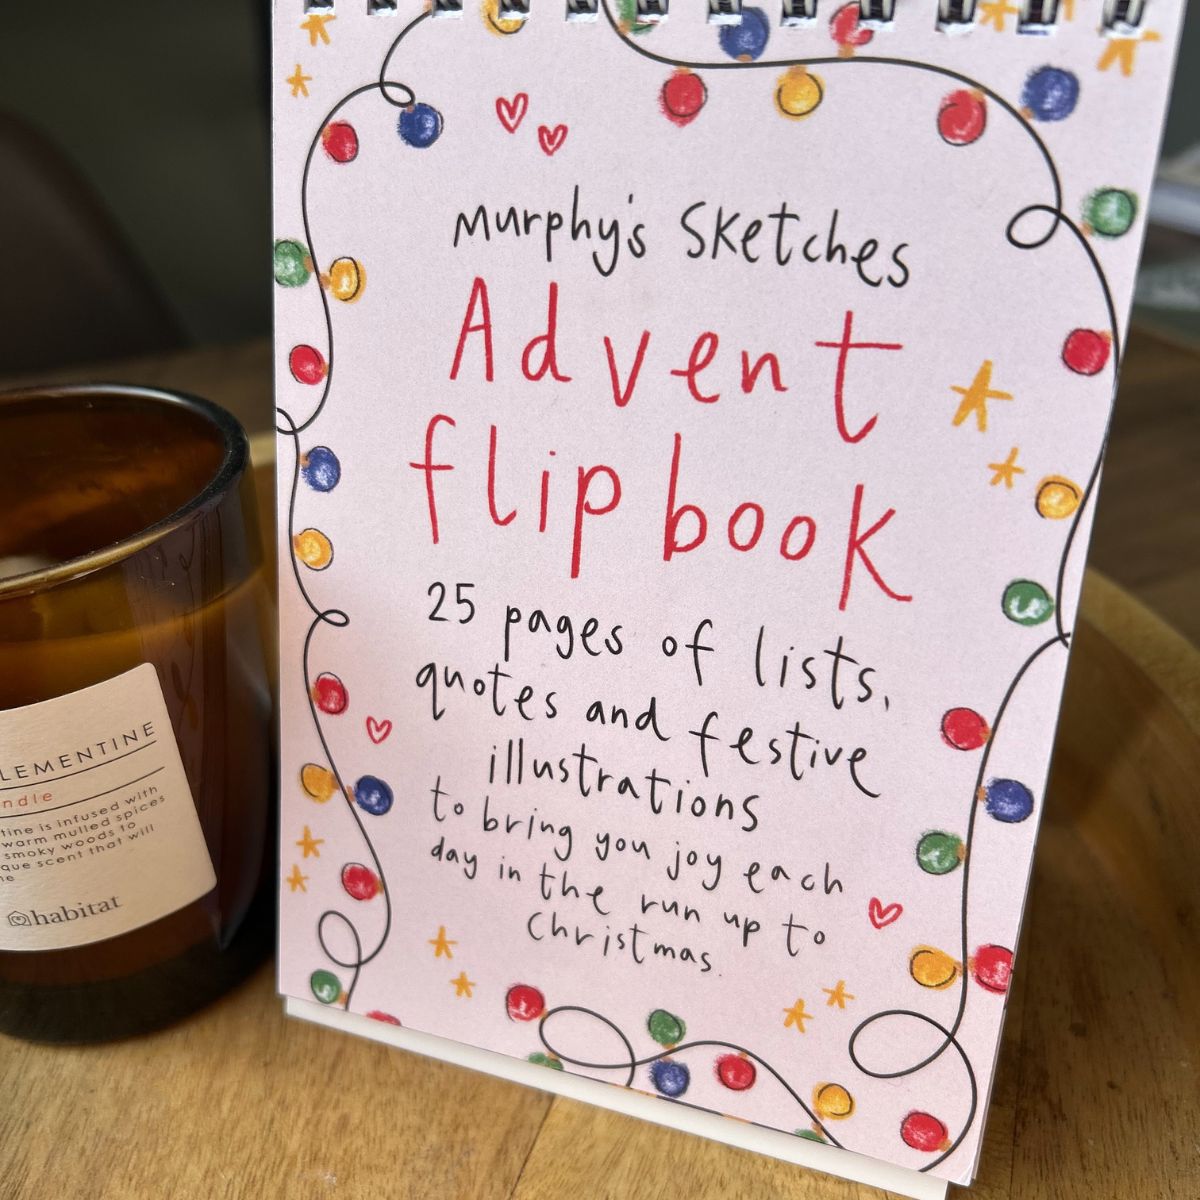 Murphy's Sketches
Advent
flip book
25 pages of lists,
quotes and festive
illustrations
to bring you joy each
day in the run up to
Christmas.
LEMENTINE
ndle
tine is infused with
warm mulled spices
smoky woods to
que scent that will
habitat